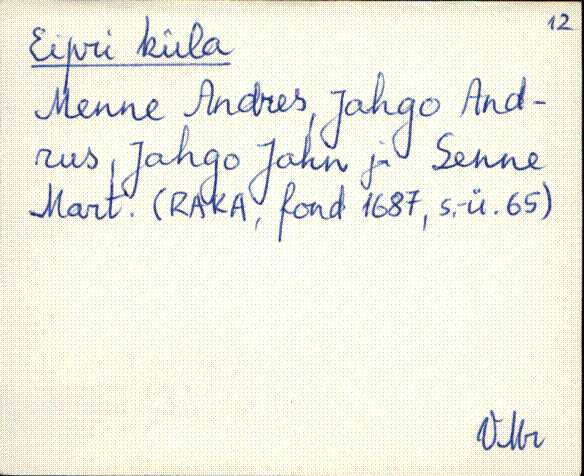 12
Eipri küla
Menne Andres, Jahgo And-
rus, Jahgo Jahn ja Senne
Mart. (RAKA, fond 1687, s.-ü. 65)
VMr